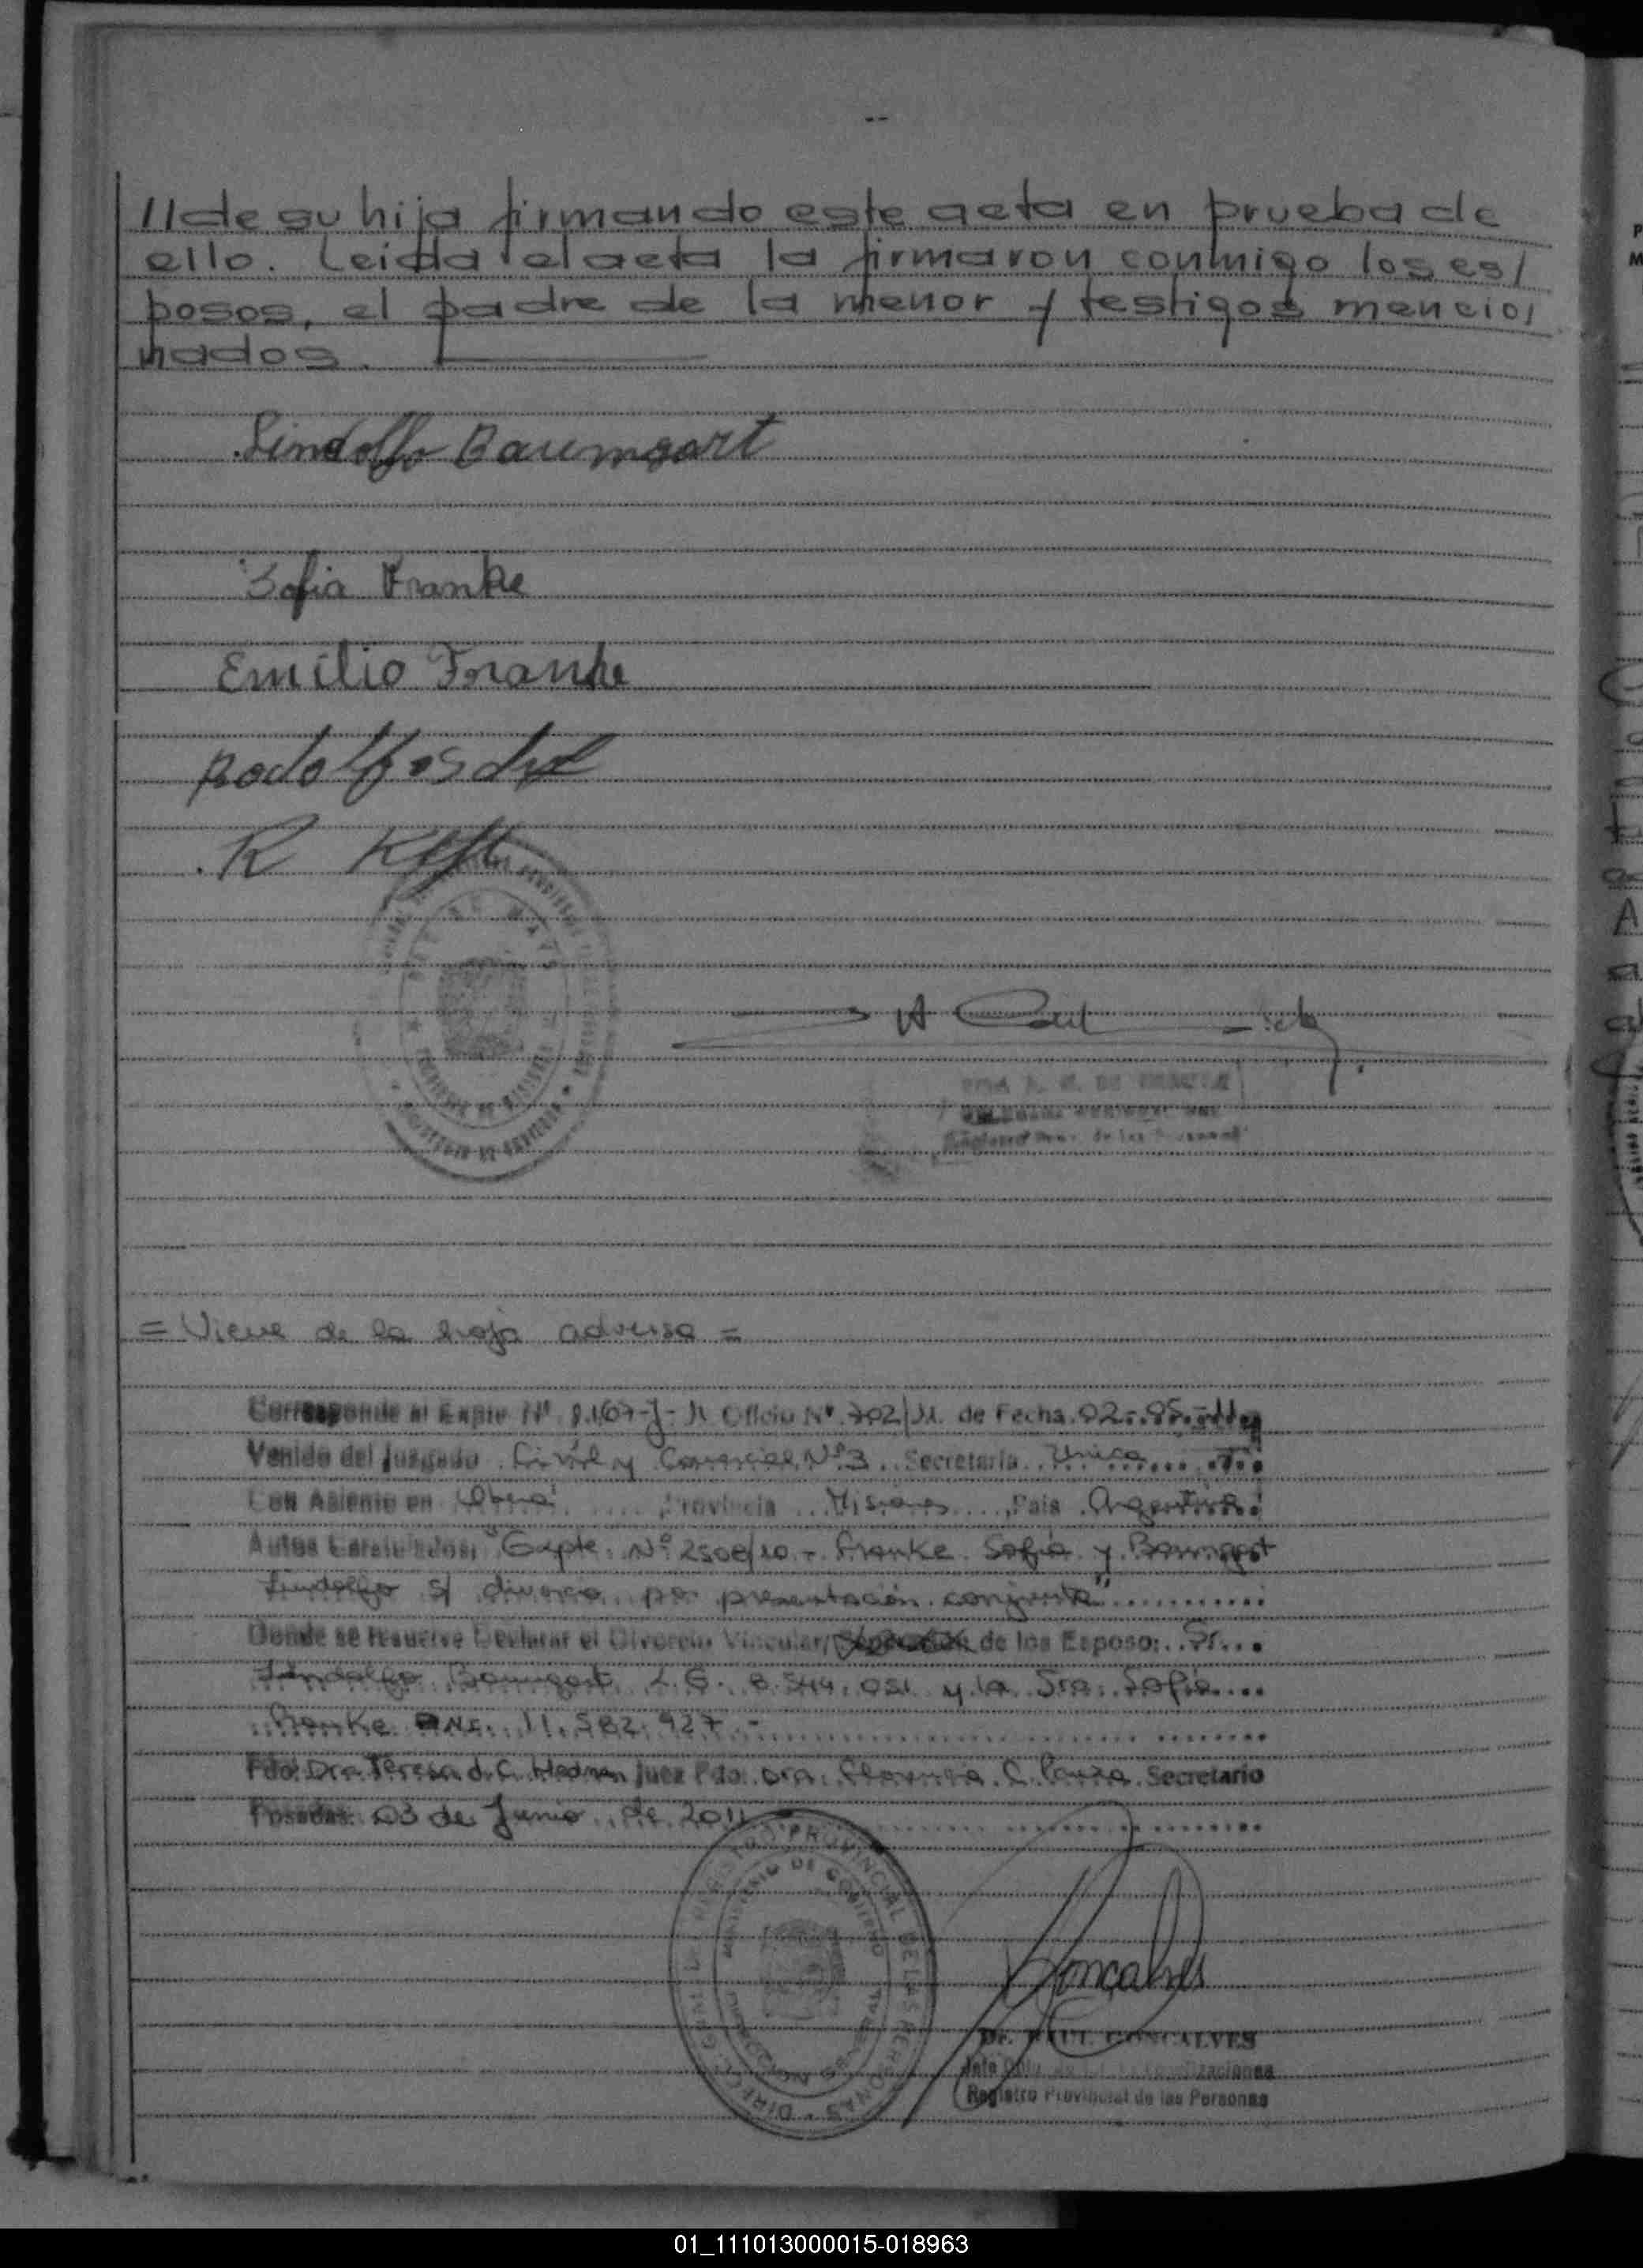 //de su hija firmando este acta en prueba de
ello. Leida el acta la firmaron conmigo los es/
posos, el padre de la menor y testigos mencio/
nados.
Lindolfo Baumgart
Sofia Franke
Emilio Franke
Rodolfo
R
= Viene de la hoja adversa =
Corresponde al Expte Nº 8.167-J-11 Oficio Nº 702/11. de Fecha 02-05-11
Venido del Juzgado Civil y Comercial Nº 3 Secretaría Unica
Con Asiento en Oberá Provincia Misiones País Argentina
Autos Caratulados: "Expte. Nº 2508/10 - Franke Sofia y Baumgart
Lindolfo s/ divorcio por presentación conjunta"
Donde se resuelve Declarar el Divorcio Vincular/ de los Esposo: Sr.
Lindolfo Baumgart L.E. 8.544.051 y la Sra. Sofia
Franke DNI. 11.582.927 -
Fdo: Dra Teresa d. C. Juez Fdo: Dra. C. Secretario
Posadas: 03 de Junio de 2011
DIREC. GRAL. DEL REGISTRO PROVINCIAL DE LAS PERSONAS
MINISTERIO DE GOBIERNO
Goncalves
Dr. RAUL GONCALVES
Jefe
Registro Provincial de las Personas
01_111013000015-018963